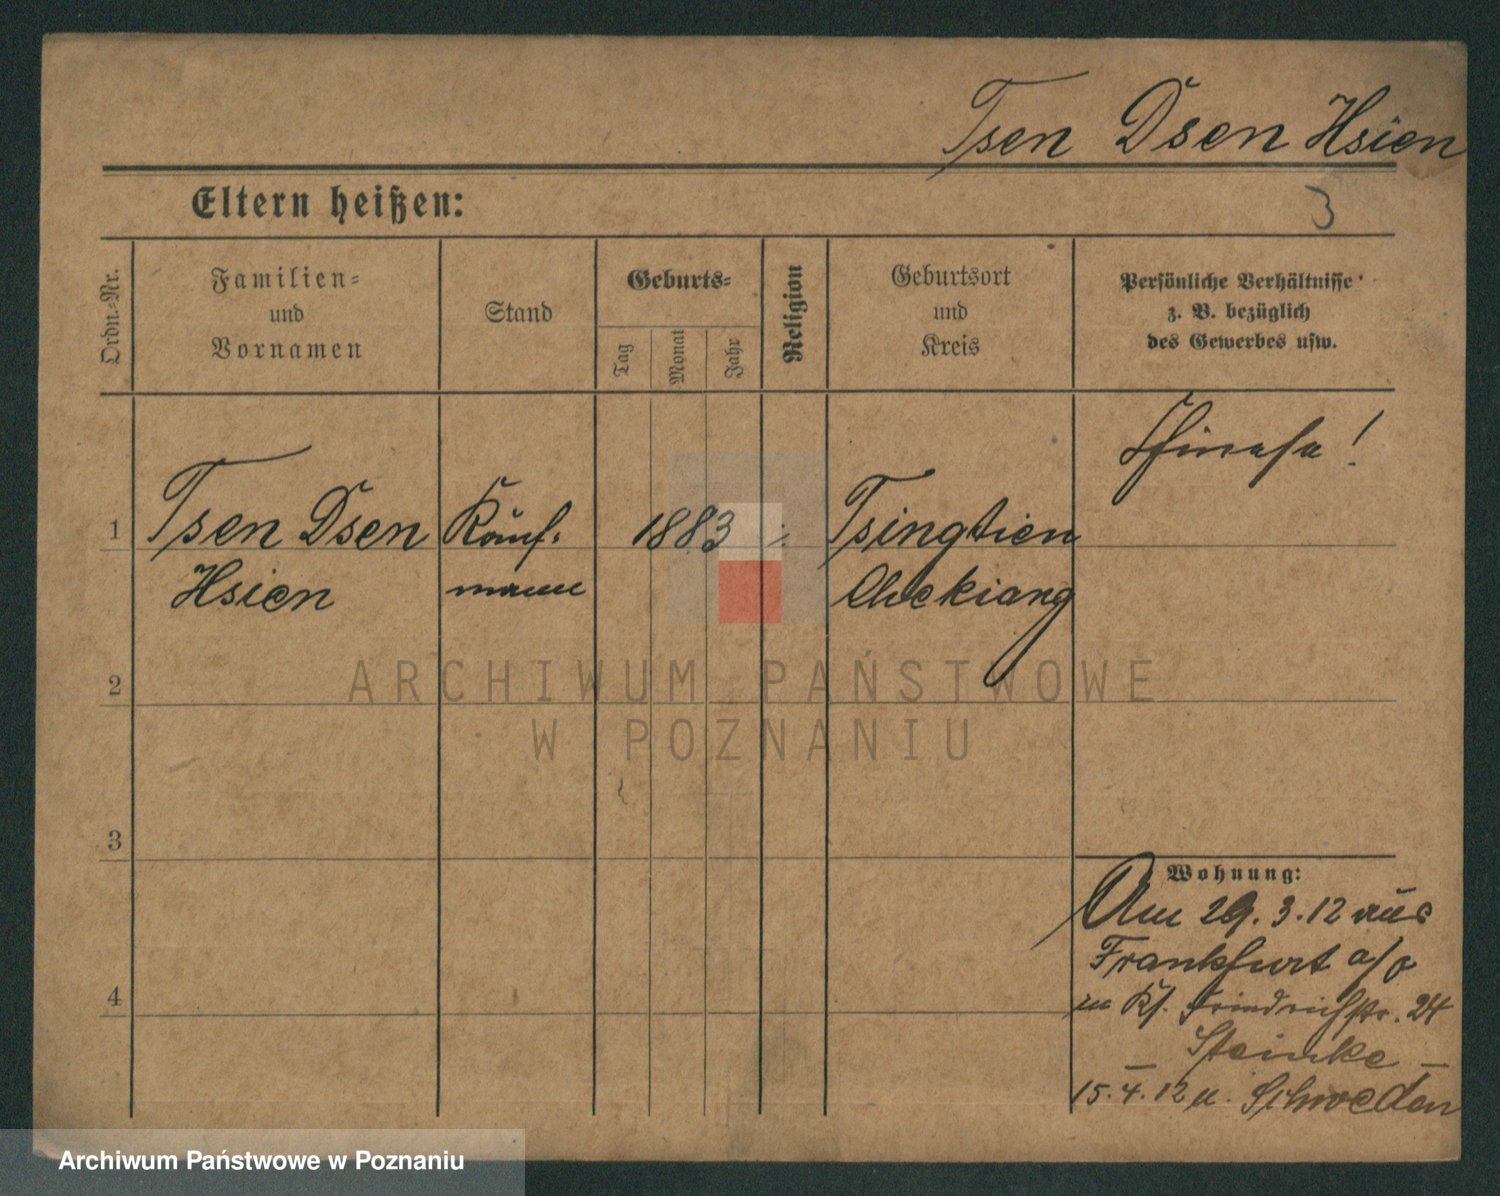 Tsen Dsen Hsien
Eltern heißen:
3
Ordn.-Nr.
Familien-
und
Vornamen
Stand
Geburts-
Tag
Monat
Jahr
Religion
Geburtsort
und
Kreis
Persönliche Verhältnisse
z. B. bezüglich
des Gewerbes usw.
Chinese!
1
Tsen Dsen
Hsien
Kauf-
mann
1883
Tsingtien
Chekiang
2
3
4
Wohnung:
Am 29.3.12 aus
Frankfurt a/o
Friedrichstr. 24
– Steinke –
15.4.12 n. Schweden
ARCHIWUM PAŃSTWOWE
W POZNANIU
Archiwum Państwowe w Poznaniu